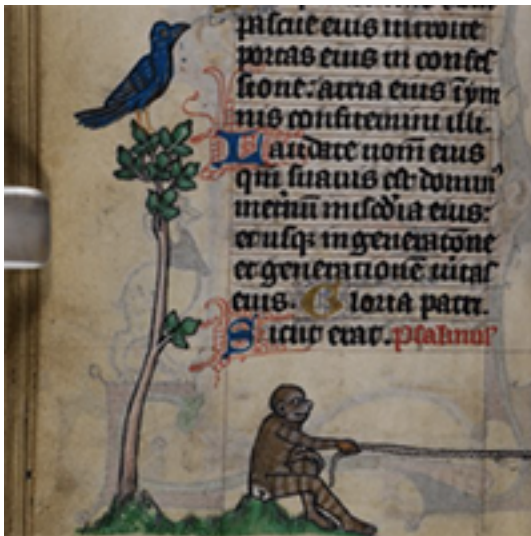 pascue eius introite
portas eius in confes
sione: atria eius i ym
nis confitemini illi.
Laudate nom̄ eius
qm̄ suauis est domin᾽
in et̄nū mis̄cdia eius:
et usq; in generatōne
et generationē uitas
eius. Gloria patri.
Sicut erat. psalmus